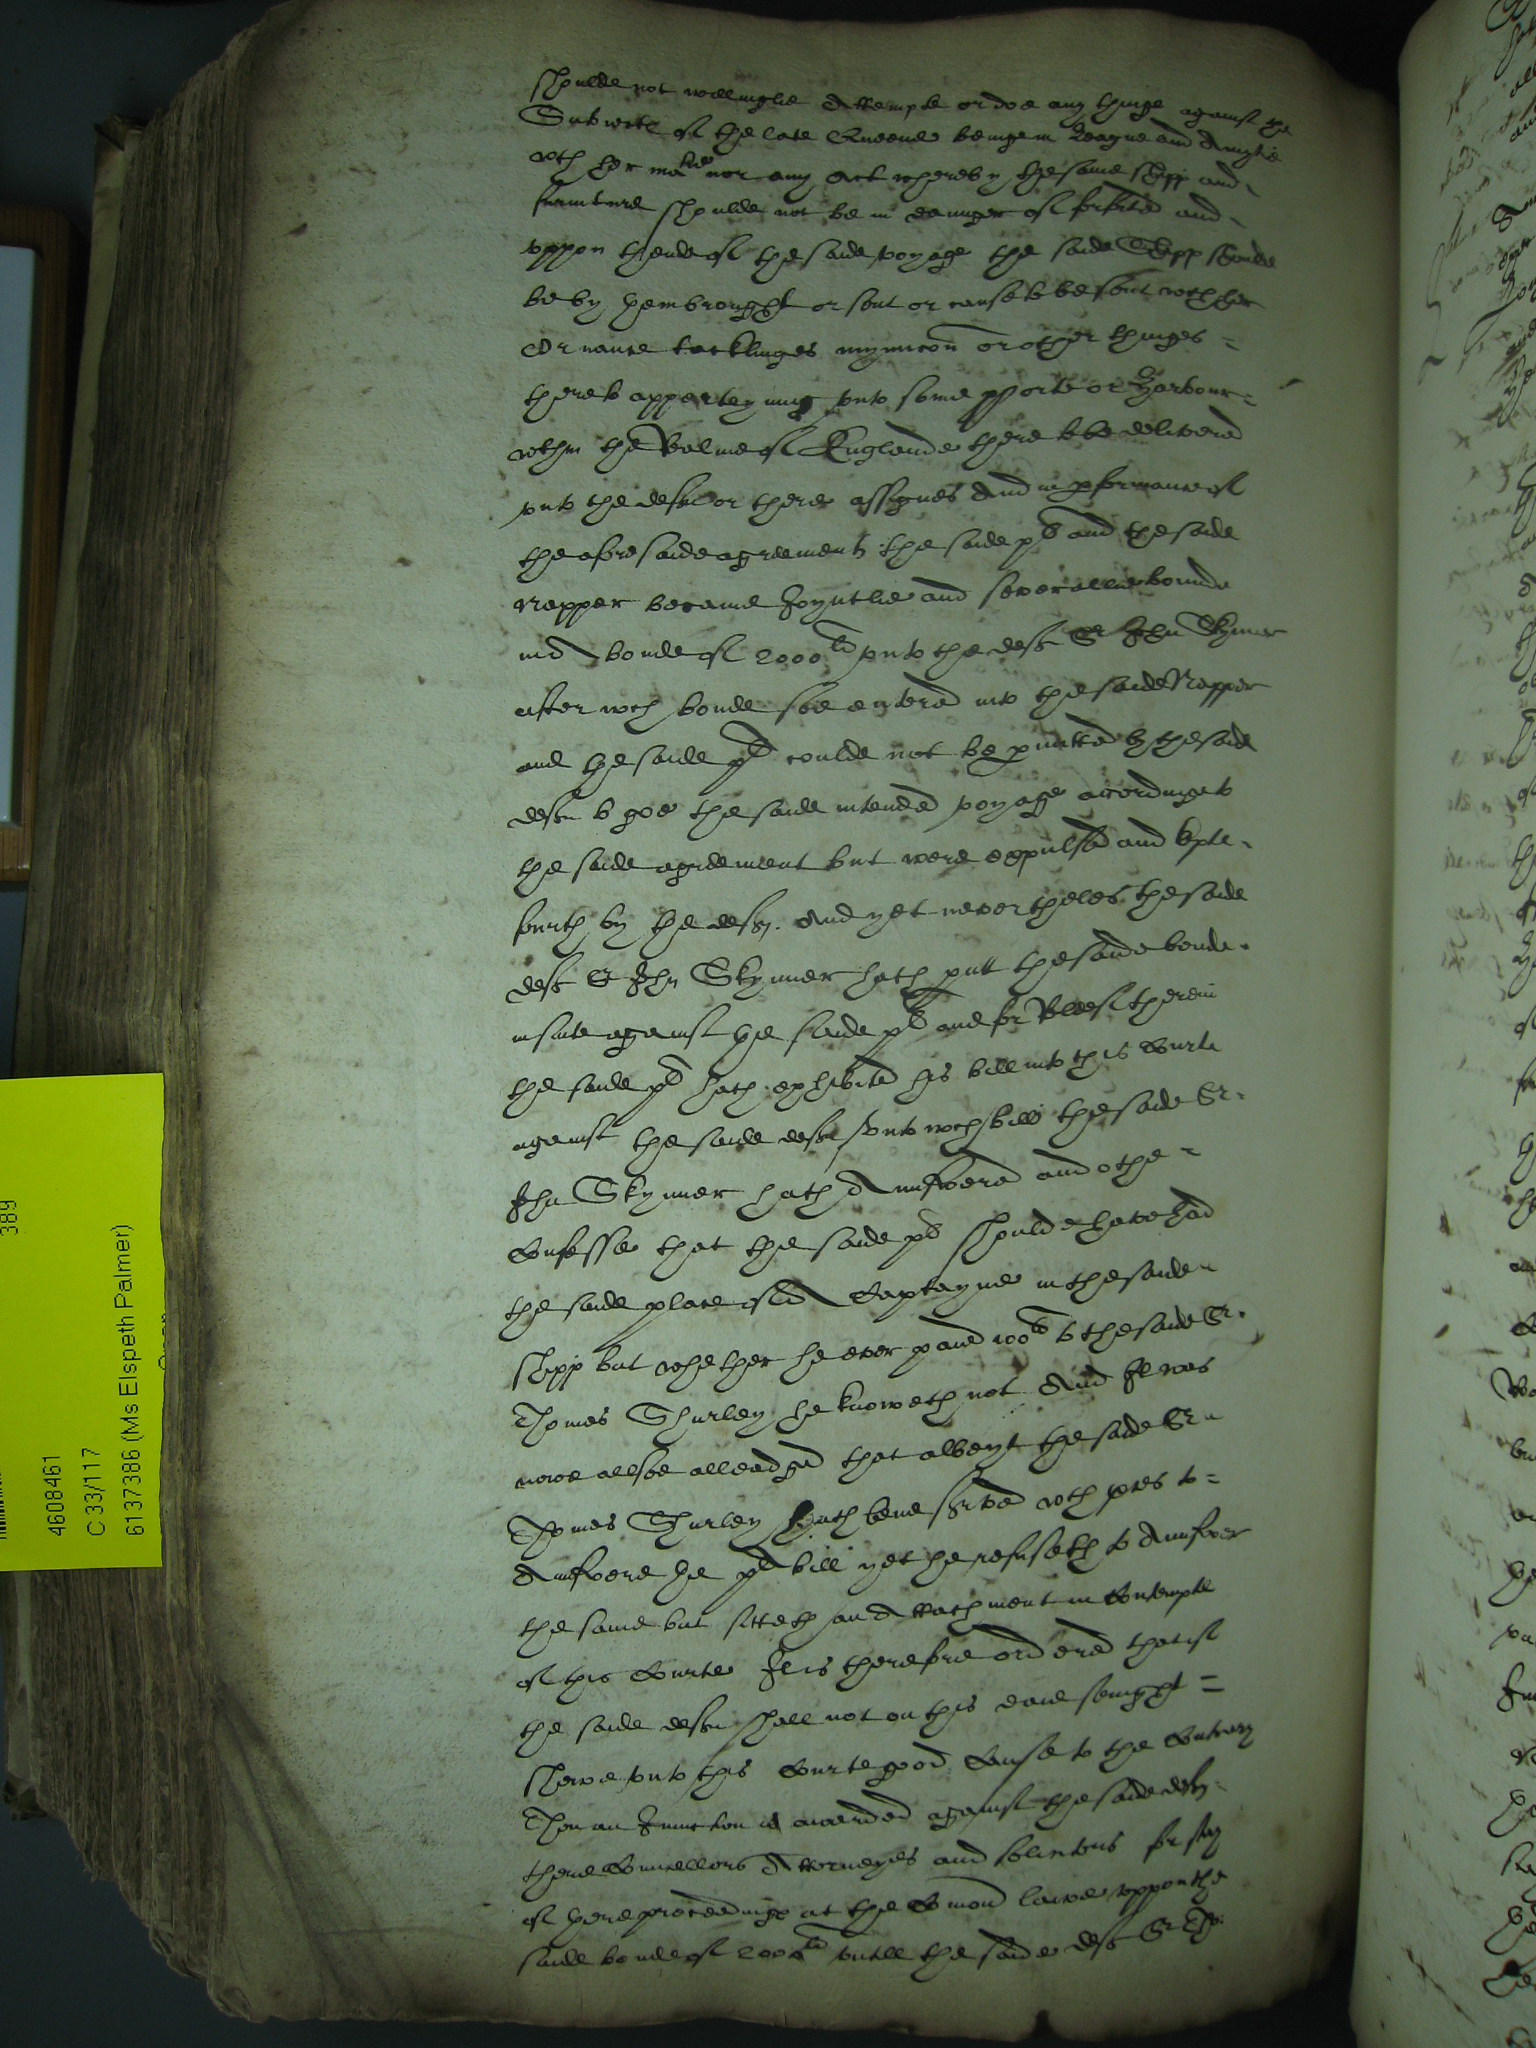 shoulde not willinglie Attempte or doe any thinge against the
Subiects of the late Queene beinge in League and Amytie
wth her matie nor any Act whereby the same shipp and
furniture shoulde not be in daunger of forfited and
vppon thende of the saide voyage the saide Shipp shoulde
be by them brought or sent or cause to be sent wth her
Ordnance tacklinges munycon or other thinges =
thereto apperteyning vnto some pporte or Harbour =
wthin the Realme of Englande there to be delivered
vnto the defte or there assignes And in pformance of
the aforesaide agreements the saide pl and the saide
Napper became Joyntlie and severallie bounde
in A bonde of 2000li vnto the deft Sr John Skynner
after wch bonde soe entered into the saide Napper
and the saide pl coulde not be pmitted by the saide
defte to goe the saide intended voyage accordinge to
the saide agreement but were expulsed and kepte
fourth by the defts. And yet neverthelesse the saide
deft Sr John Skynner hath putt the saide bonde
in suite against the saide pl and for Releef therein
the saide pl hath exhibited his bill into this Courte
against the saide defte vnto wch bill the saide Sr
John Skynner hath Answered and othe =
Confesse that the saide pl shoulde have had
the saide place of A Captayne in the saide
shipp but whether he ever paied 100li to the saide Sr
Thomas Shurley he knoweth not And It was
nowe allsoe alleadged that albeyt the saide Sr
Thomas Shurley hath bene served wth pces to =
Answere the pl bill yet he refuseth to Answer
the same but sitteth an Attachment in Contempte
of this Courte It is therefore ordered that if
the saide defte shall not on this daie senight =
shewe vnto this Courte good Cause to the Contrary
Then an Iniunction is awarded against the saide defts
there Councellors Attorneyes and solicitors for stay
of there proceedings at the Comon lawe vppon the
saide bonde of 2000li vntill the saide deft Sr Tho:
389
4608461
C 33/117
6137386 (Ms Elspeth Palmer)